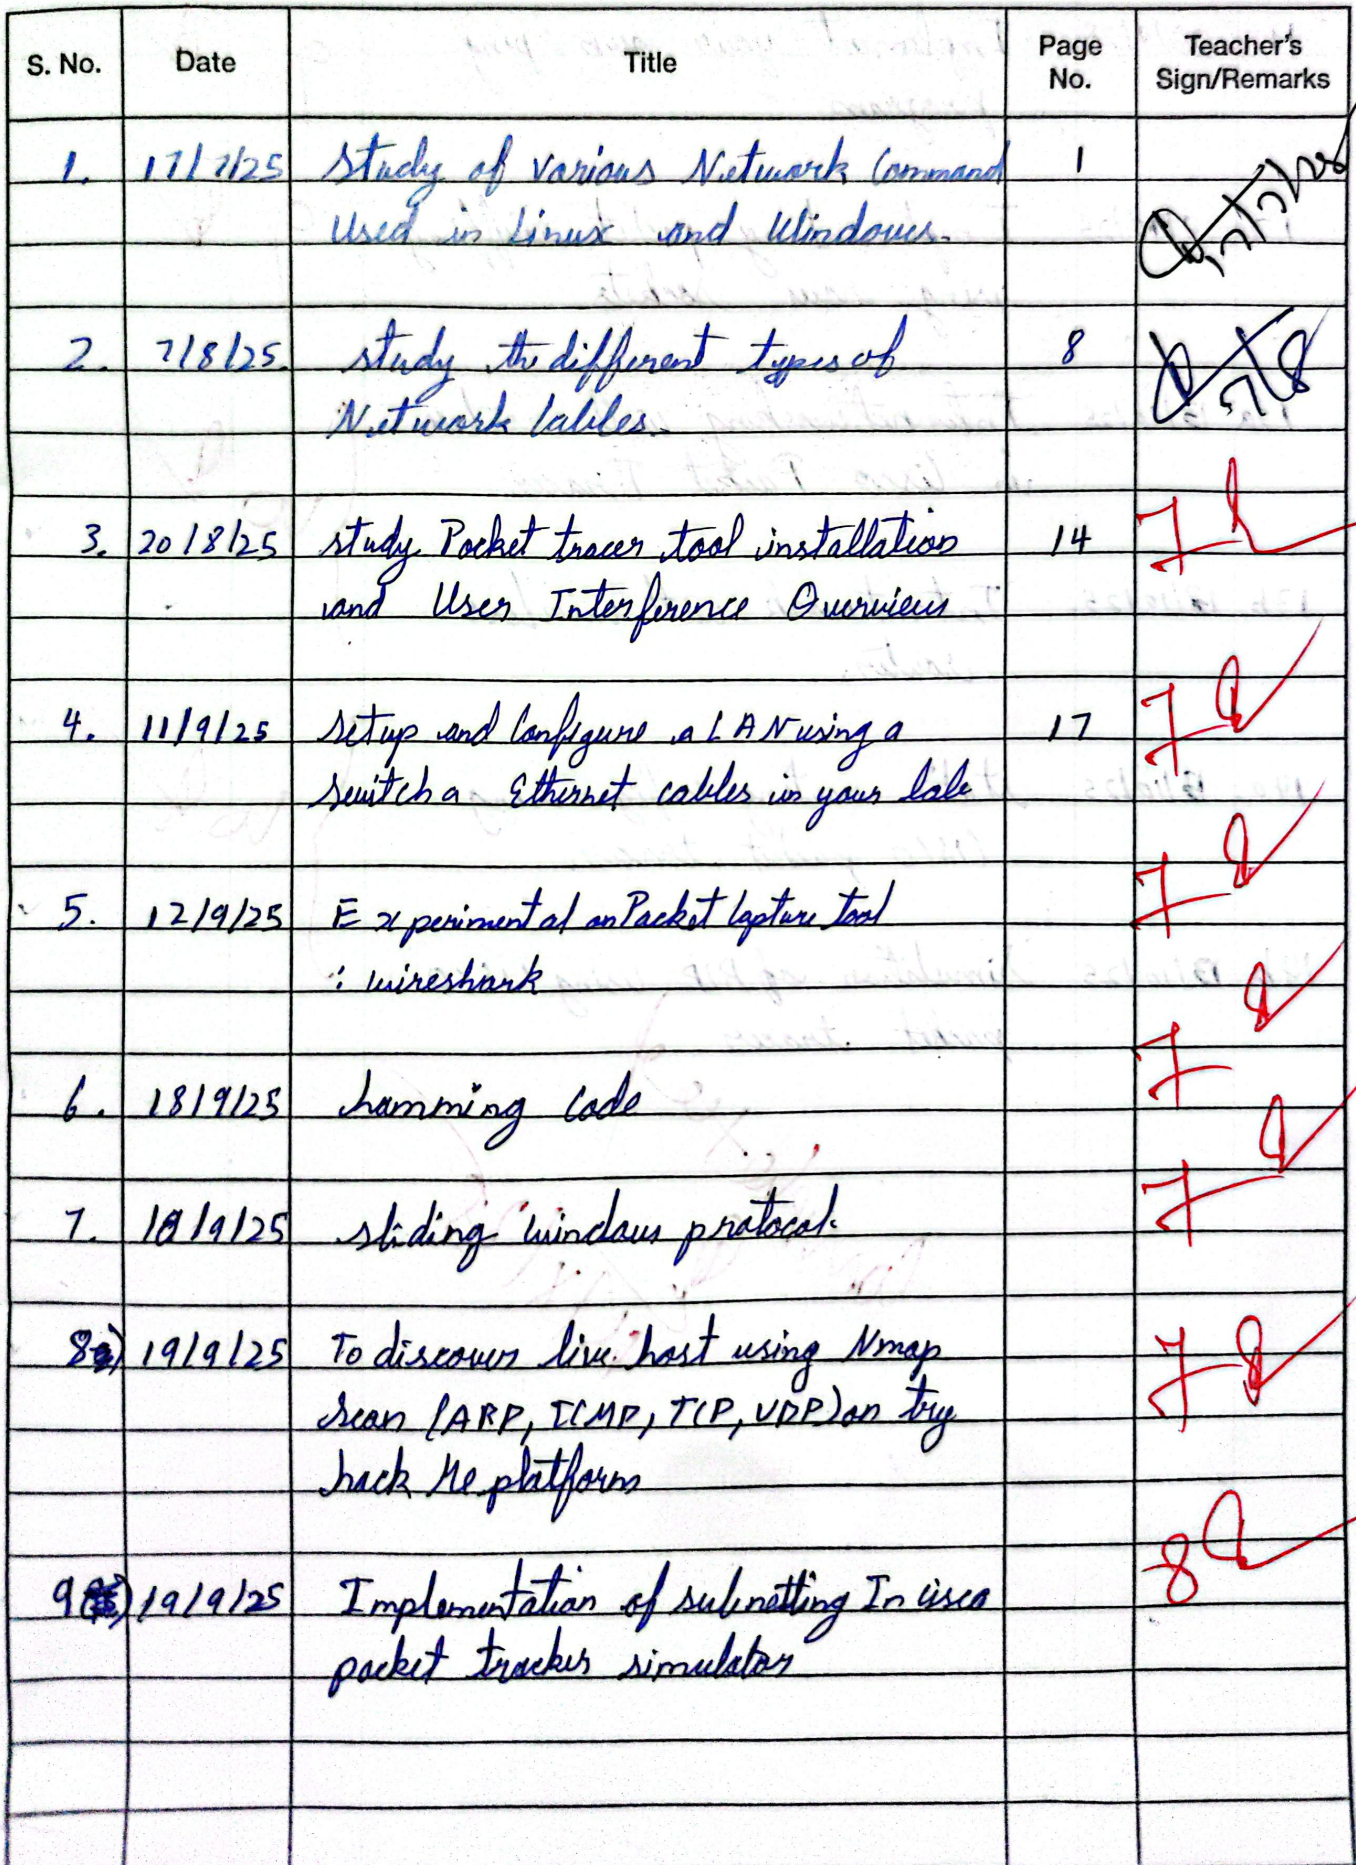 S. No. Date Title Page No. Teacher's Sign/Remarks
1. 17/7/25 Study of various Network Command 1
Used in Linux and Windows.
17/7/25
2. 7/8/25. study the different types of 8
Network Cables.
7/8
3. 20/8/25 study Packet tracer tool installation 14
and User Interference Overview
7
4. 11/9/25 Setup and Configure a LAN using a 17
Switch a Ethernet cables in your lab
7
5. 12/9/25 Experimental on Packet Capture tool
: wireshark
7
6. 18/9/25 hamming Code
7
7. 18/9/25 sliding window protocol.
7
8 19/9/25 To discover live host using Nmap
Scan (ARP, ICMP, TCP, UDP) on try
hack Me platform
7
9 19/9/25 Implementation of subnetting In cisco
packet tracker simulator
8